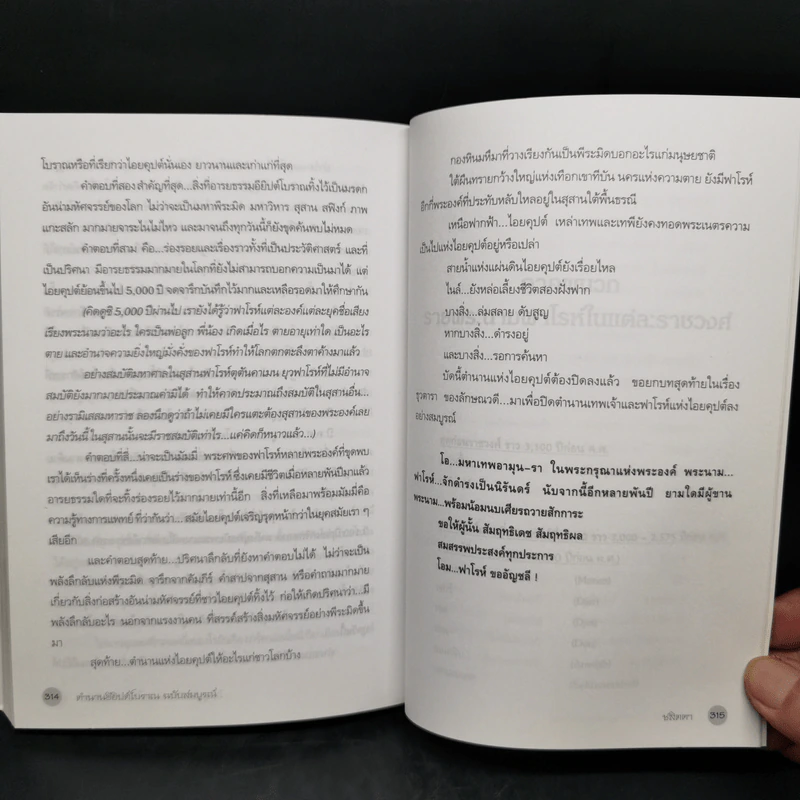 โบราณหรือที่เรียกว่าไอยคุปต์นั่นเอง ยาวนานและเก่าแก่ที่สุด
คำตอบที่สอง สำคัญที่สุด...สิ่งที่อารยธรรมอียิปต์โบราณทิ้งไว้เป็นมรดก
อันน่ามหัศจรรย์ของโลก ไม่ว่าจะเป็นมหาพีระมิด มหาวิหาร สุสาน สฟิงก์ ภาพ
แกะสลัก มากมายจาระไนไม่ไหว และมาจนถึงทุกวันนี้ก็ยังขุดค้นพบไม่หมด
คำตอบที่สาม คือ...ร่องรอยและเรื่องราวทั้งที่เป็นประวัติศาสตร์ และที่
เป็นปริศนา มีอารยธรรมมากมายในโลกที่ยังไม่สามารถบอกความเป็นมาได้ แต่
ไอยคุปต์ย้อนขึ้นไป 5,000 ปี จดจารึกบันทึกไว้มากและเหลือรอดมาให้ศึกษากัน
(คิดดูซิ 5,000 ปีผ่านไป เรายังได้รู้ว่าฟาโรห์แต่ละองค์แต่ละยุคชื่อเสียง
เรียงพระนามว่าอะไร ใครเป็นพ่อลูก พี่น้อง เกิดเมื่อไร ตายอายุเท่าใด เป็นอะไร
ตาย และอำนาจความยิ่งใหญ่มั่งคั่งของฟาโรห์ทำให้โลกตกตะลึงตาค้างมาแล้ว
อย่างสมบัติมหาศาลในสุสานฟาโรห์ตุตันคาเมน ยุวฟาโรห์ที่ไม่มีอำนาจ
สมบัติยังมากมายประมาณค่ามิได้ ทำให้คาดประมาณถึงสมบัติในสุสานอื่น...
อย่างรามิเสสมหาราช ลองนึกดูว่าถ้าไม่เคยมีใครแตะต้องสุสานของพระองค์เลย
มาถึงวันนี้ ในสุสานนั้นจะมีราชสมบัติเท่าไร...แค่คิดก็หนาวแล้ว...)
คำตอบที่สี่...น่าจะเป็นมัมมี่ พระศพของฟาโรห์หลายพระองค์ที่ขุดพบ
เราได้เห็นร่างที่ครั้งหนึ่งเคยเป็นร่างของฟาโรห์ ซึ่งเคยมีชีวิตเมื่อหลายพันปีมาแล้ว
อารยธรรมใดที่จะทิ้งร่องรอยไว้มากมายเท่านี้อีก สิ่งที่เหลือมาพร้อมมัมมี่คือ
ความรู้ทางการแพทย์ ที่ว่ากันว่า...สมัยไอยคุปต์เจริญรุดหน้ากว่าในยุคสมัยเรา ๆ
เสียอีก
และคำตอบสุดท้าย...ปริศนาลึกลับที่ยังหาคำตอบไม่ได้ ไม่ว่าจะเป็น
พลังลึกลับแห่งพีระมิด จารึกจากคัมภีร์ คำสาปจากสุสาน หรือคำถามมากมาย
เกี่ยวกับสิ่งก่อสร้างอันน่ามหัศจรรย์ที่ชาวไอยคุปต์ทิ้งไว้ ก่อให้เกิดปริศนาว่า...มี
พลังลึกลับอะไร นอกจากแรงงานคน ที่สรรค์สร้างสิ่งมหัศจรรย์อย่างพีระมิดขึ้น
มา
สุดท้าย...ตำนานแห่งไอยคุปต์ให้อะไรแก่ชาวโลกบ้าง
314 ตำนานอียิปต์โบราณ ฉบับสมบูรณ์
กองหินมหึมาที่วางเรียงกันเป็นพีระมิดบอกอะไรแก่มนุษยชาติ
ใต้ผืนทรายกว้างใหญ่แห่งเทือกเขาทีบัน นครแห่งความตาย ยังมีฟาโรห์
อีกกี่พระองค์ที่ประทับหลับใหลอยู่ในสุสานใต้พื้นธรณี
เหนือฟากฟ้า...ไอยคุปต์ เหล่าเทพและเทพียังคงทอดพระเนตรความ
เป็นไปแห่งไอยคุปต์อยู่หรือเปล่า
สายน้ำแห่งแผ่นดินไอยคุปต์ยังเรื่อยไหล
ไนล์...ยังหล่อเลี้ยงชีวิตสองฝั่งฟาก
บางสิ่ง...ล่มสลาย ดับสูญ
หากบางสิ่ง...ดำรงอยู่
และบางสิ่ง...รอการค้นหา
บัดนี้ตำนานแห่งไอยคุปต์ต้องปิดลงแล้ว ขอยกบทสุดท้ายในเรื่อง
ธุวตารา ของลักษณวดี...มาเพื่อปิดตำนานเทพเจ้าและฟาโรห์แห่งไอยคุปต์ลง
อย่างสมบูรณ์
โอ...มหาเทพอามุน-รา ในพระกรุณาแห่งพระองค์ พระนาม...
ฟาโรห์...จักดำรงเป็นนิรันดร์ นับจากนี้อีกหลายพันปี ยามใดมีผู้ขาน
พระนาม...พร้อมน้อมนบเศียรถวายสักการะ
ขอให้ผู้นั้น สัมฤทธิเดช สัมฤทธิผล
สมสรรพประสงค์ทุกประการ
โอม...ฟาโรห์ ขออัญชลี !
315